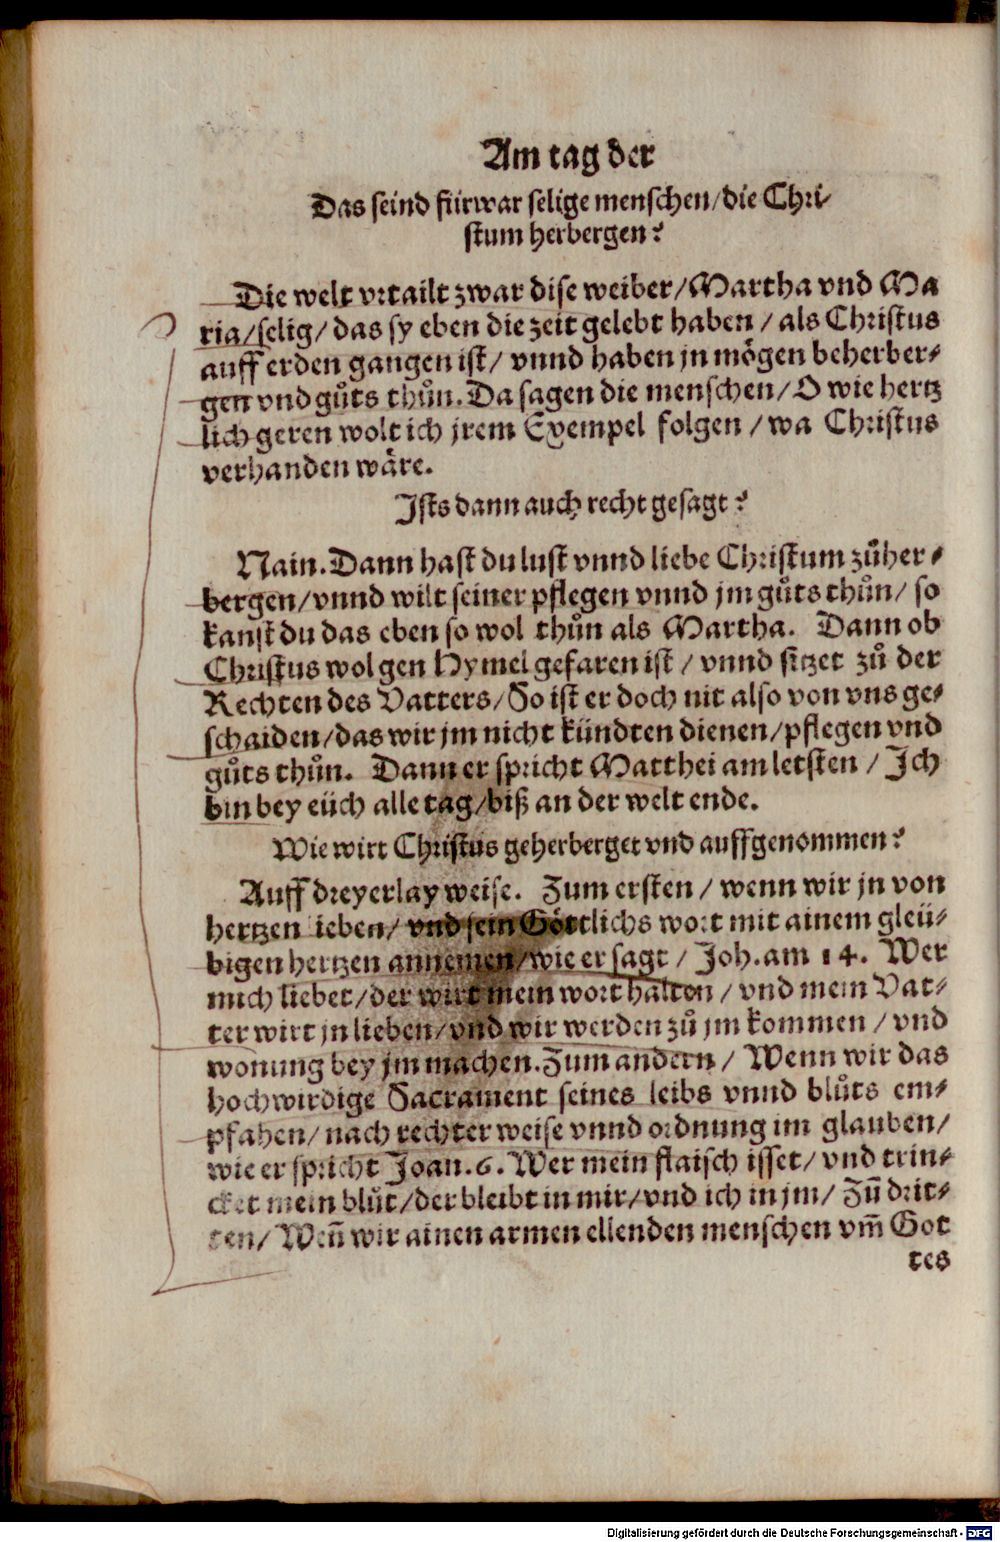 Am tag der
Das seind fürwar selige menschen/die Chri⸗
stum herbergen?
Die welt vrtailt zwar dise weiber/Martha vnd Ma
ria/selig/das sy eben die zeit gelebt haben/als Christus
auff erden gangen ist/vnnd haben jn mögen beherber⸗
gen vnd gůts thůn. Da sagen die menschen/O wie hertz
lich geren wolt ich jrem Exempel folgen/wa Christus
verhanden wäre.
Ists dann auch recht gesagt?
Nain. Dann hast du lust vnnd liebe Christum zůher⸗
bergen/vnnd wilt seiner pflegen vnnd jm gůts thůn/so
kanst du das eben so wol thůn als Martha. Dann ob
Christus wol gen Hymel gefaren ist/vnnd sitzet zů der
Rechten des Vatters/So ist er doch nit also von vns ge⸗
schaiden/das wir jm nicht kündten dienen/pflegen vnd
gůts thůn. Dann er spricht Matthei am letsten/Ich
bin bey eüch alle tag/biß an der welt ende.
Wie wirt Christus geherberget vnd auffgenommen?
Auff dreyerlay weise. Zum ersten/wenn wir jn von
hertzen ieben/vnd sein Göttlichs wort mit ainem gleü⸗
bigen hertzen annemen/wie er sagt/Joh. am 14. Wer
mich liebet/der wirt mein wort halten/vnd mein Vat⸗
ter wirt jn lieben/vnd wir werden zů jm kommen/vnd
wonung bey jm machen. Zum andern/Wenn wir das
hochwirdige Sacrament seines leibs vnnd blůts em⸗
pfahen/nach rechter weise vnnd ordnung im glauben/
wie er spricht Joan. 6. Wer mein flaisch isset/vnd trin⸗
cket mein blůt/der bleibt in mir/vnd ich in jm/Zū drit⸗
ten/Wen̄ wir ainen armen ellenden menschen vm̄ Got
tes
Digitalisierung gefördert durch die Deutsche Forschungsgemeinschaft - DFG